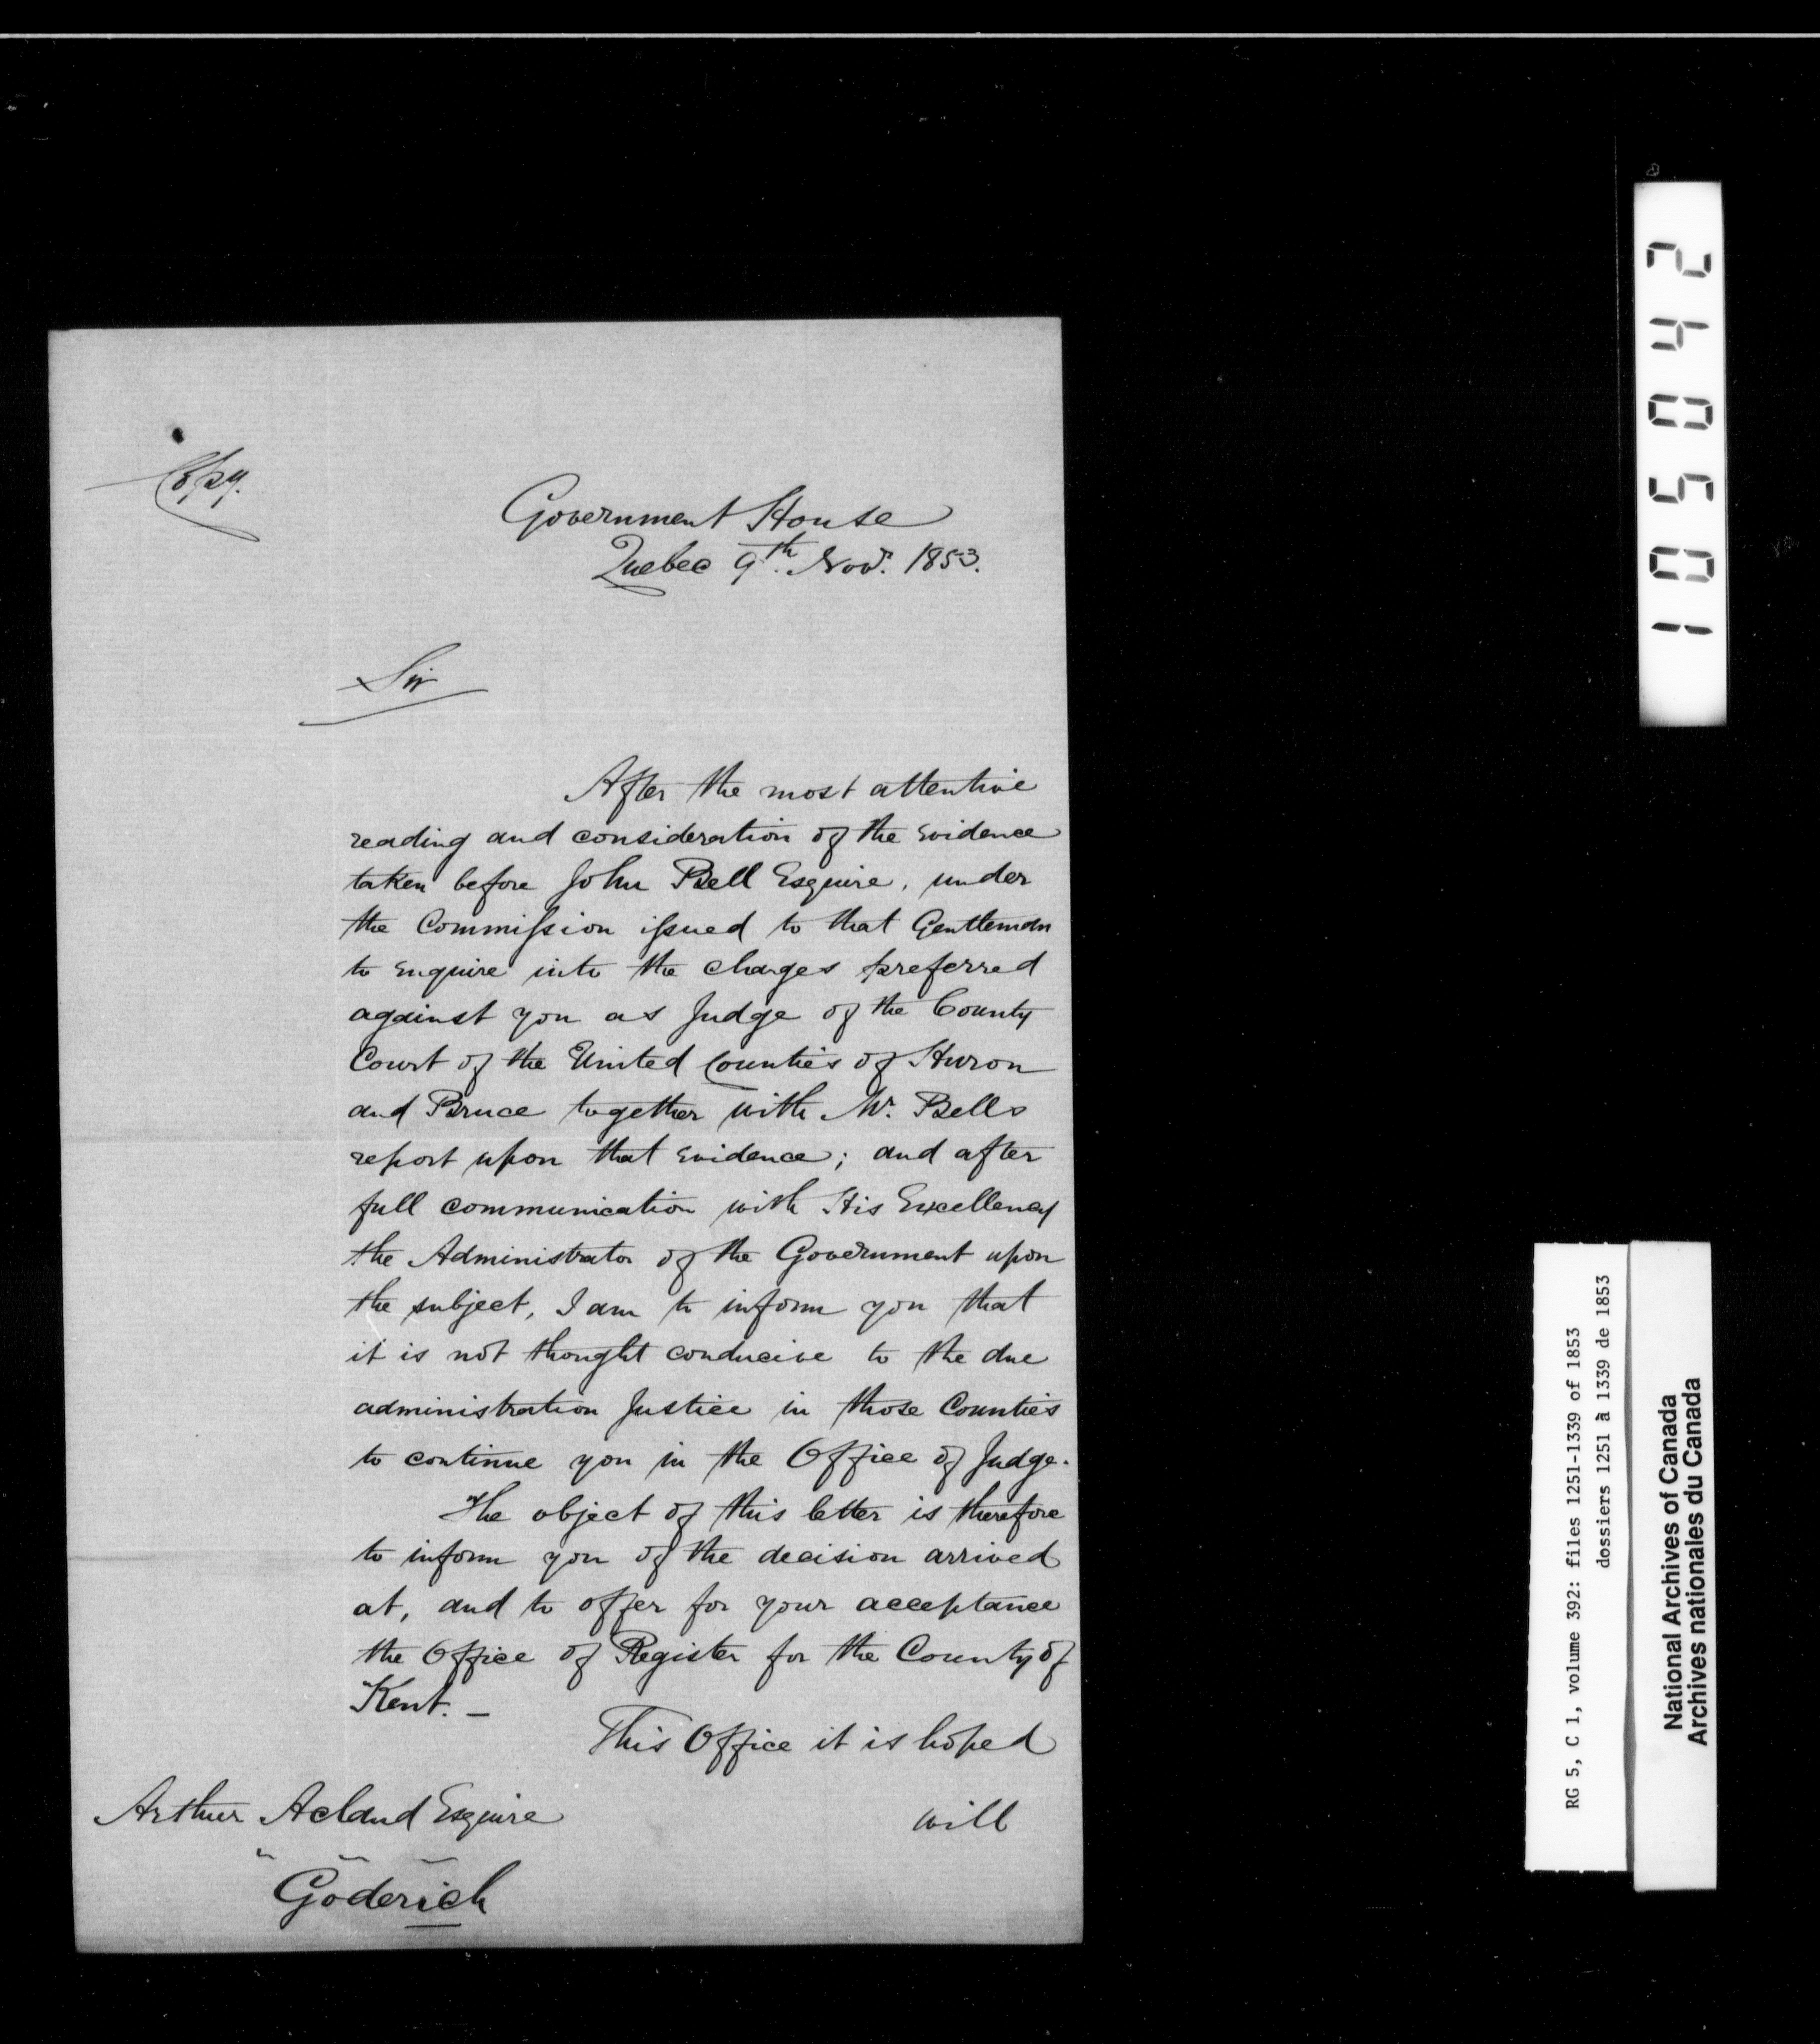 Copy.
Government House
Quebec 9th. Novr. 1853.
Sir
After the most attentive
reading and consideration of the evidence
taken before John Bell Esquire, under
the Commission issued to that Gentleman
to enquire into the charges preferred
against you as Judge of the County
Court of the United Counties of Huron
and Bruce together with Mr. Bells
report upon that evidence; and after
full communication with His Excellency
the Administrator of the Government upon
the subject, I am to inform you that
it is not thought conducive to the due
administration Justice in those Counties
to continue you in the Office of Judge.
The object of this letter is therefore
to inform you of the decision arrived
at, and to offer for your acceptance
the Office of Register for the County of
Kent. _
This Office it is hoped
will
Arthur Acland Esquire
Goderich
105042
RG 5, C 1, volume 392: files 1251-1339 of 1853
dossiers 1251 à 1339 de 1853
National Archives of Canada
Archives nationales du Canada